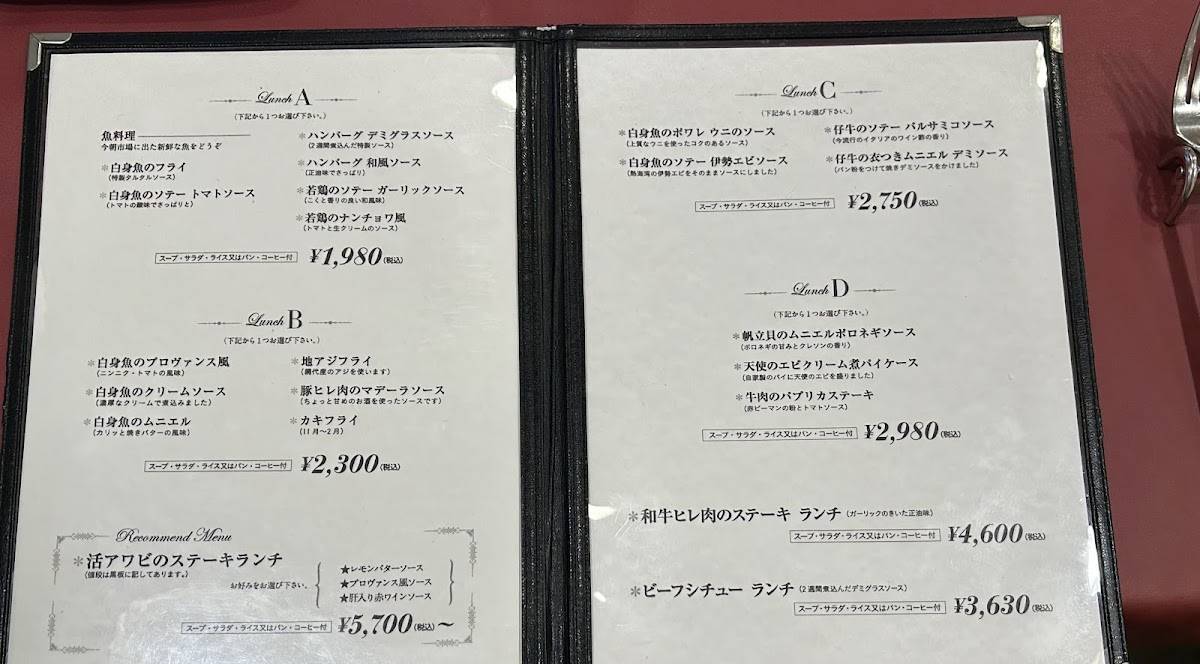 Lunch A
(下記から1つお選び下さい。)
魚料理
今朝市場に出た新鮮な魚をどうぞ
*白身魚のフライ
(特製タルタルソース)
*白身魚のソテー トマトソース
(トマトの酸味でさっぱりと)
*ハンバーグ デミグラスソース
(2週間煮込んだ特製ソース)
*ハンバーグ 和風ソース
(正油味でさっぱり)
*若鶏のソテー ガーリックソース
(こくと香りの良い和風味)
*若鶏のナンチョワ風
(トマトと生クリームのソース)
スープ・サラダ・ライス又はパン・コーヒー付 ¥1,980(税込)
Lunch B
(下記から1つお選び下さい。)
*白身魚のプロヴァンス風
(ニンニク・トマトの風味)
*白身魚のクリームソース
(濃厚なクリームで煮込みました)
*白身魚のムニエル
(カリッと焼きバターの風味)
*地アジフライ
(網代産のアジを使います)
*豚ヒレ肉のマデーラソース
(ちょっと甘めのお酒を使ったソースです)
*カキフライ
(11月〜2月)
スープ・サラダ・ライス又はパン・コーヒー付 ¥2,300(税込)
Recommend Menu
*活アワビのステーキランチ
(値段は黒板に記してあります。)
お好みをお選び下さい。
★レモンバターソース
★プロヴァンス風ソース
★肝入り赤ワインソース
スープ・サラダ・ライス又はパン・コーヒー付 ¥5,700(税込)〜
Lunch C
(下記から1つお選び下さい。)
*白身魚のポワレ ウニのソース
(上質なウニを使ったコクのあるソース)
*白身魚のソテー 伊勢エビソース
(熱海湾の伊勢エビをそのままソースにしました)
*仔牛のソテー バルサミコソース
(今流行のイタリアのワイン酢の香り)
*仔牛の衣つきムニエル デミソース
(パン粉をつけて焼きデミソースをかけました)
スープ・サラダ・ライス又はパン・コーヒー付 ¥2,750(税込)
Lunch D
(下記から1つお選び下さい。)
*帆立貝のムニエルポロネギソース
(ポロネギの甘みとクレソンの香り)
*天使のエビクリーム煮パイケース
(自家製のパイに天使のエビを盛りました)
*牛肉のパプリカステーキ
(赤ピーマンの粉とトマトソース)
スープ・サラダ・ライス又はパン・コーヒー付 ¥2,980(税込)
*和牛ヒレ肉のステーキ ランチ (ガーリックのきいた正油味)
スープ・サラダ・ライス又はパン・コーヒー付 ¥4,600(税込)
*ビーフシチュー ランチ (2週間煮込んだデミグラスソース)
スープ・サラダ・ライス又はパン・コーヒー付 ¥3,630(税込)